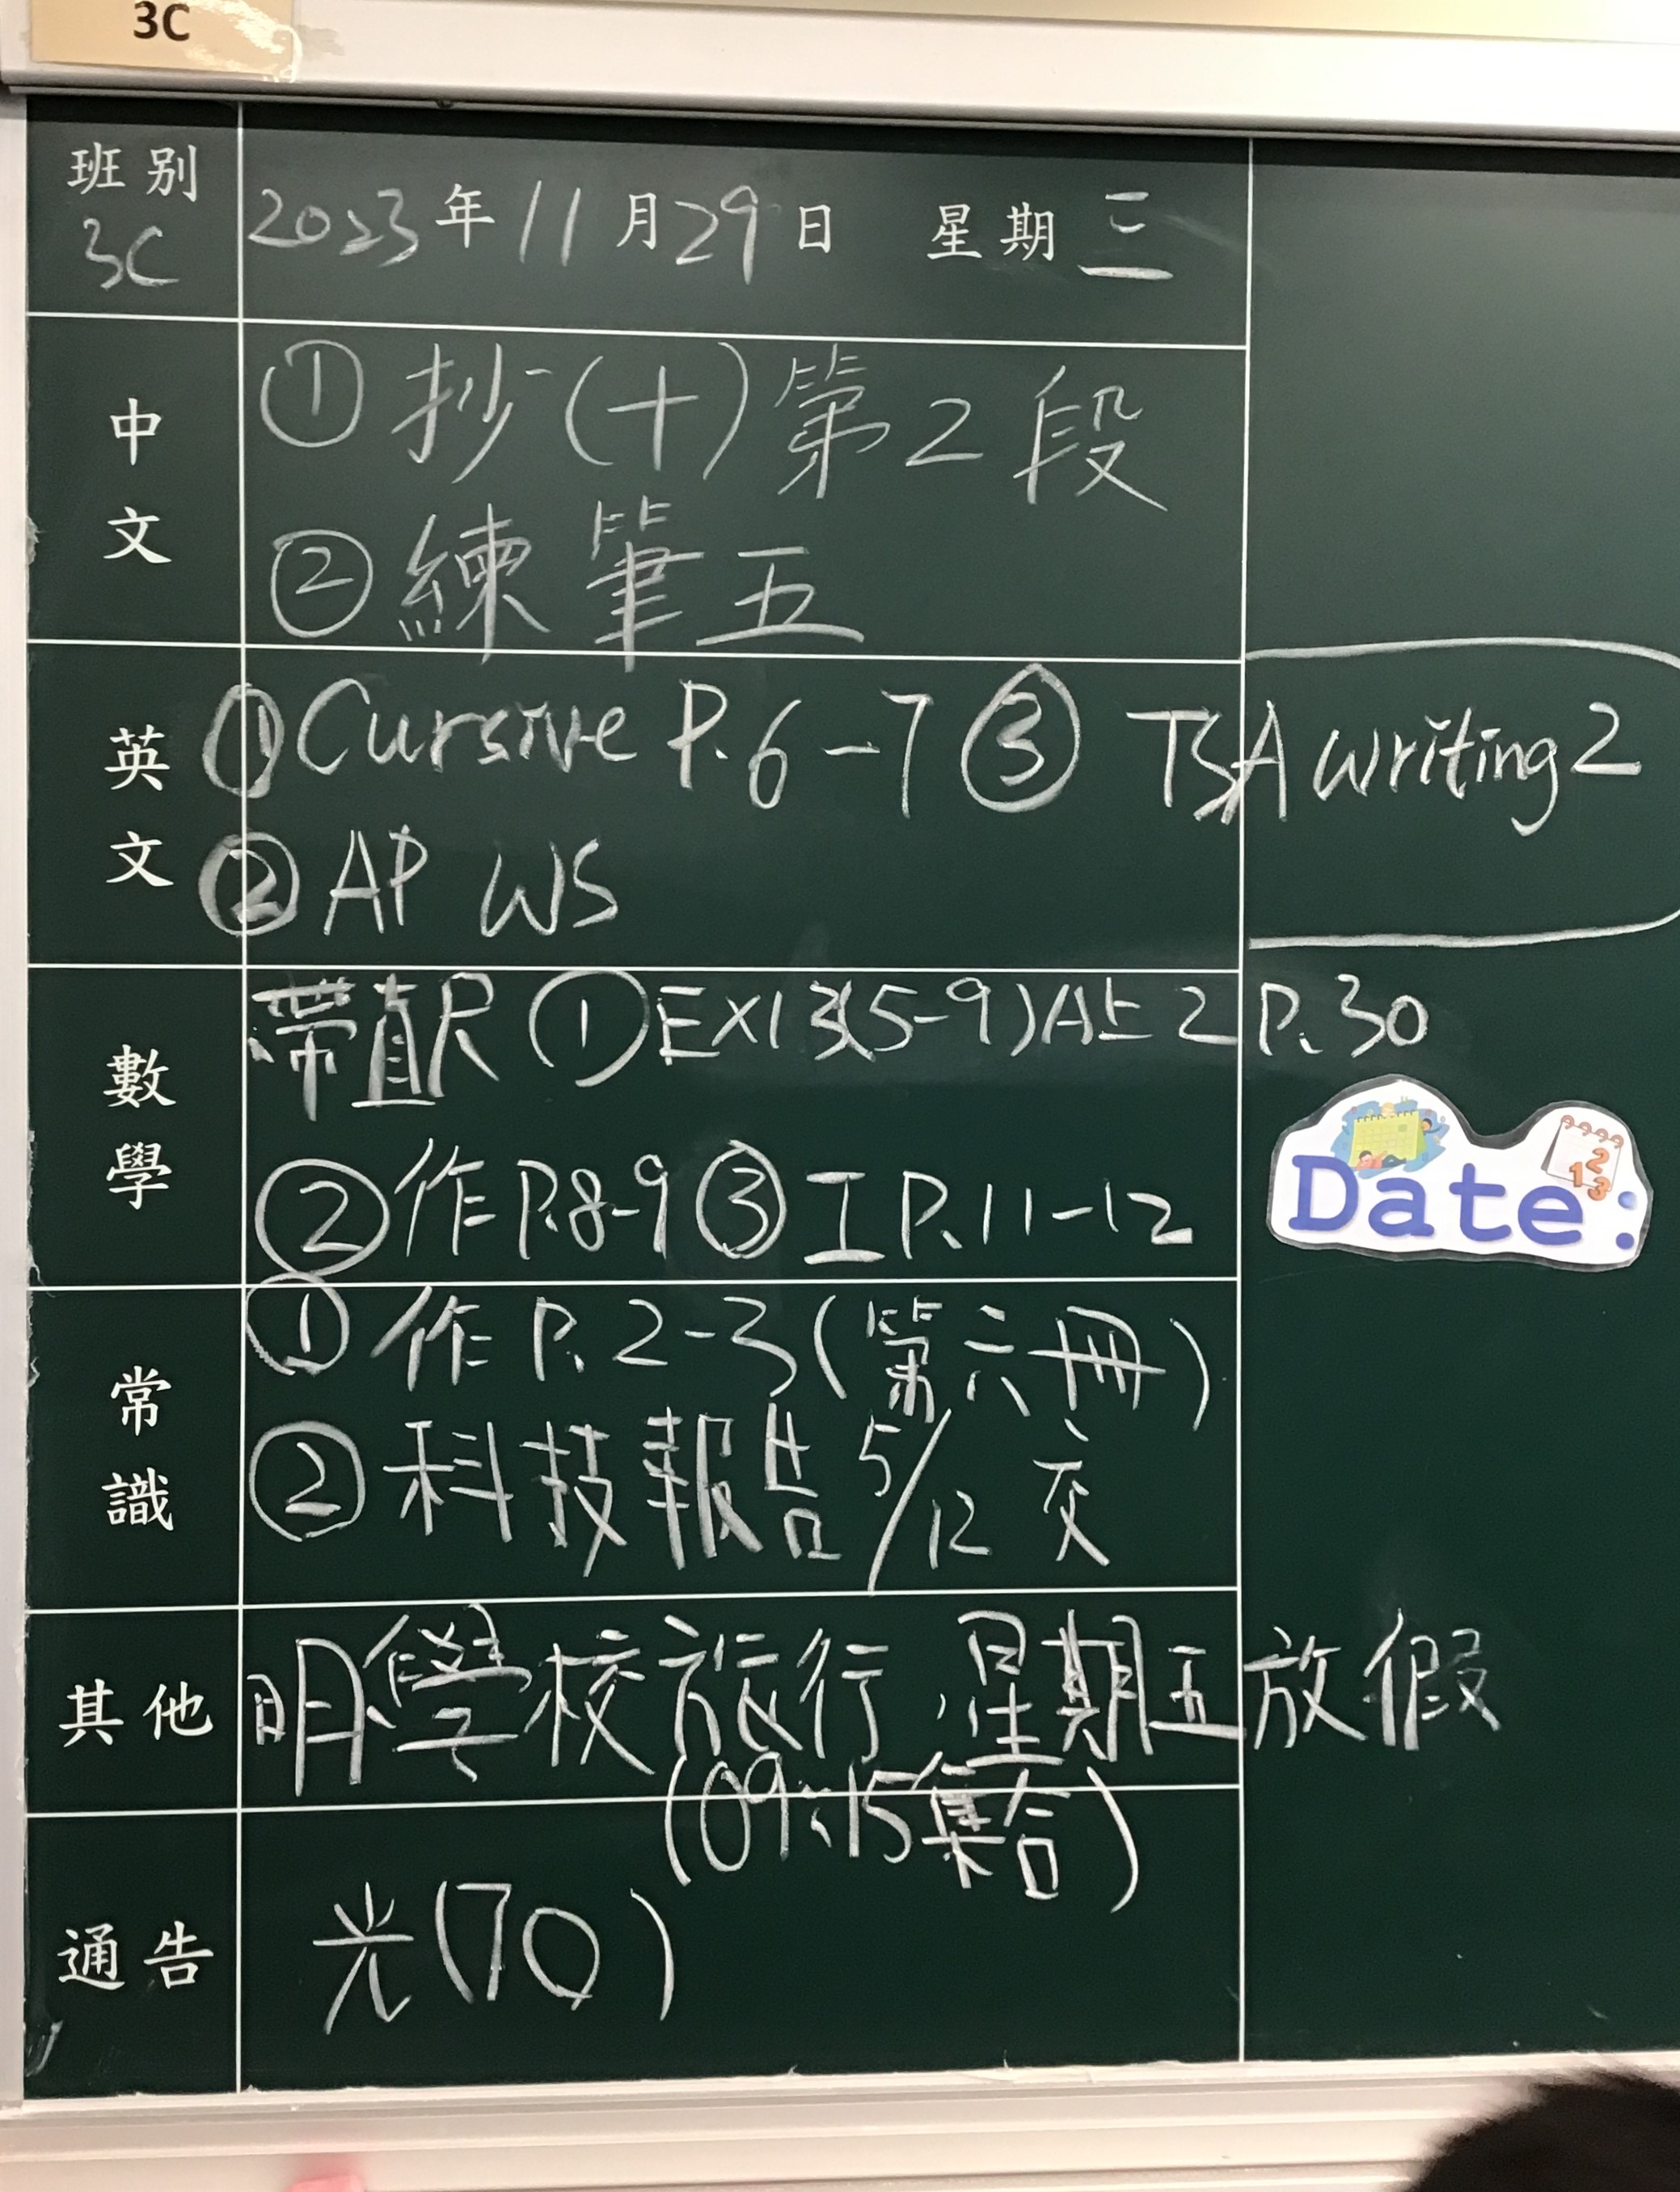 3C
班別
3C
2023年11月29日 星期三
中文
① 抄(十)第2段
② 練筆五
英文
① Cursive P.6-7 ③ TSA writing 2
② AP WS
數學
帶直尺 ① EX13(5-9)A上2 P.30
② 作 P.8-9 ③ 工 P.11-12
Date:
常識
① 作 P.2-3(第六冊)
② 科技報告 5/12 交
其他
明學校旅行,星期五放假
(09:15集合)
通告
光(70)